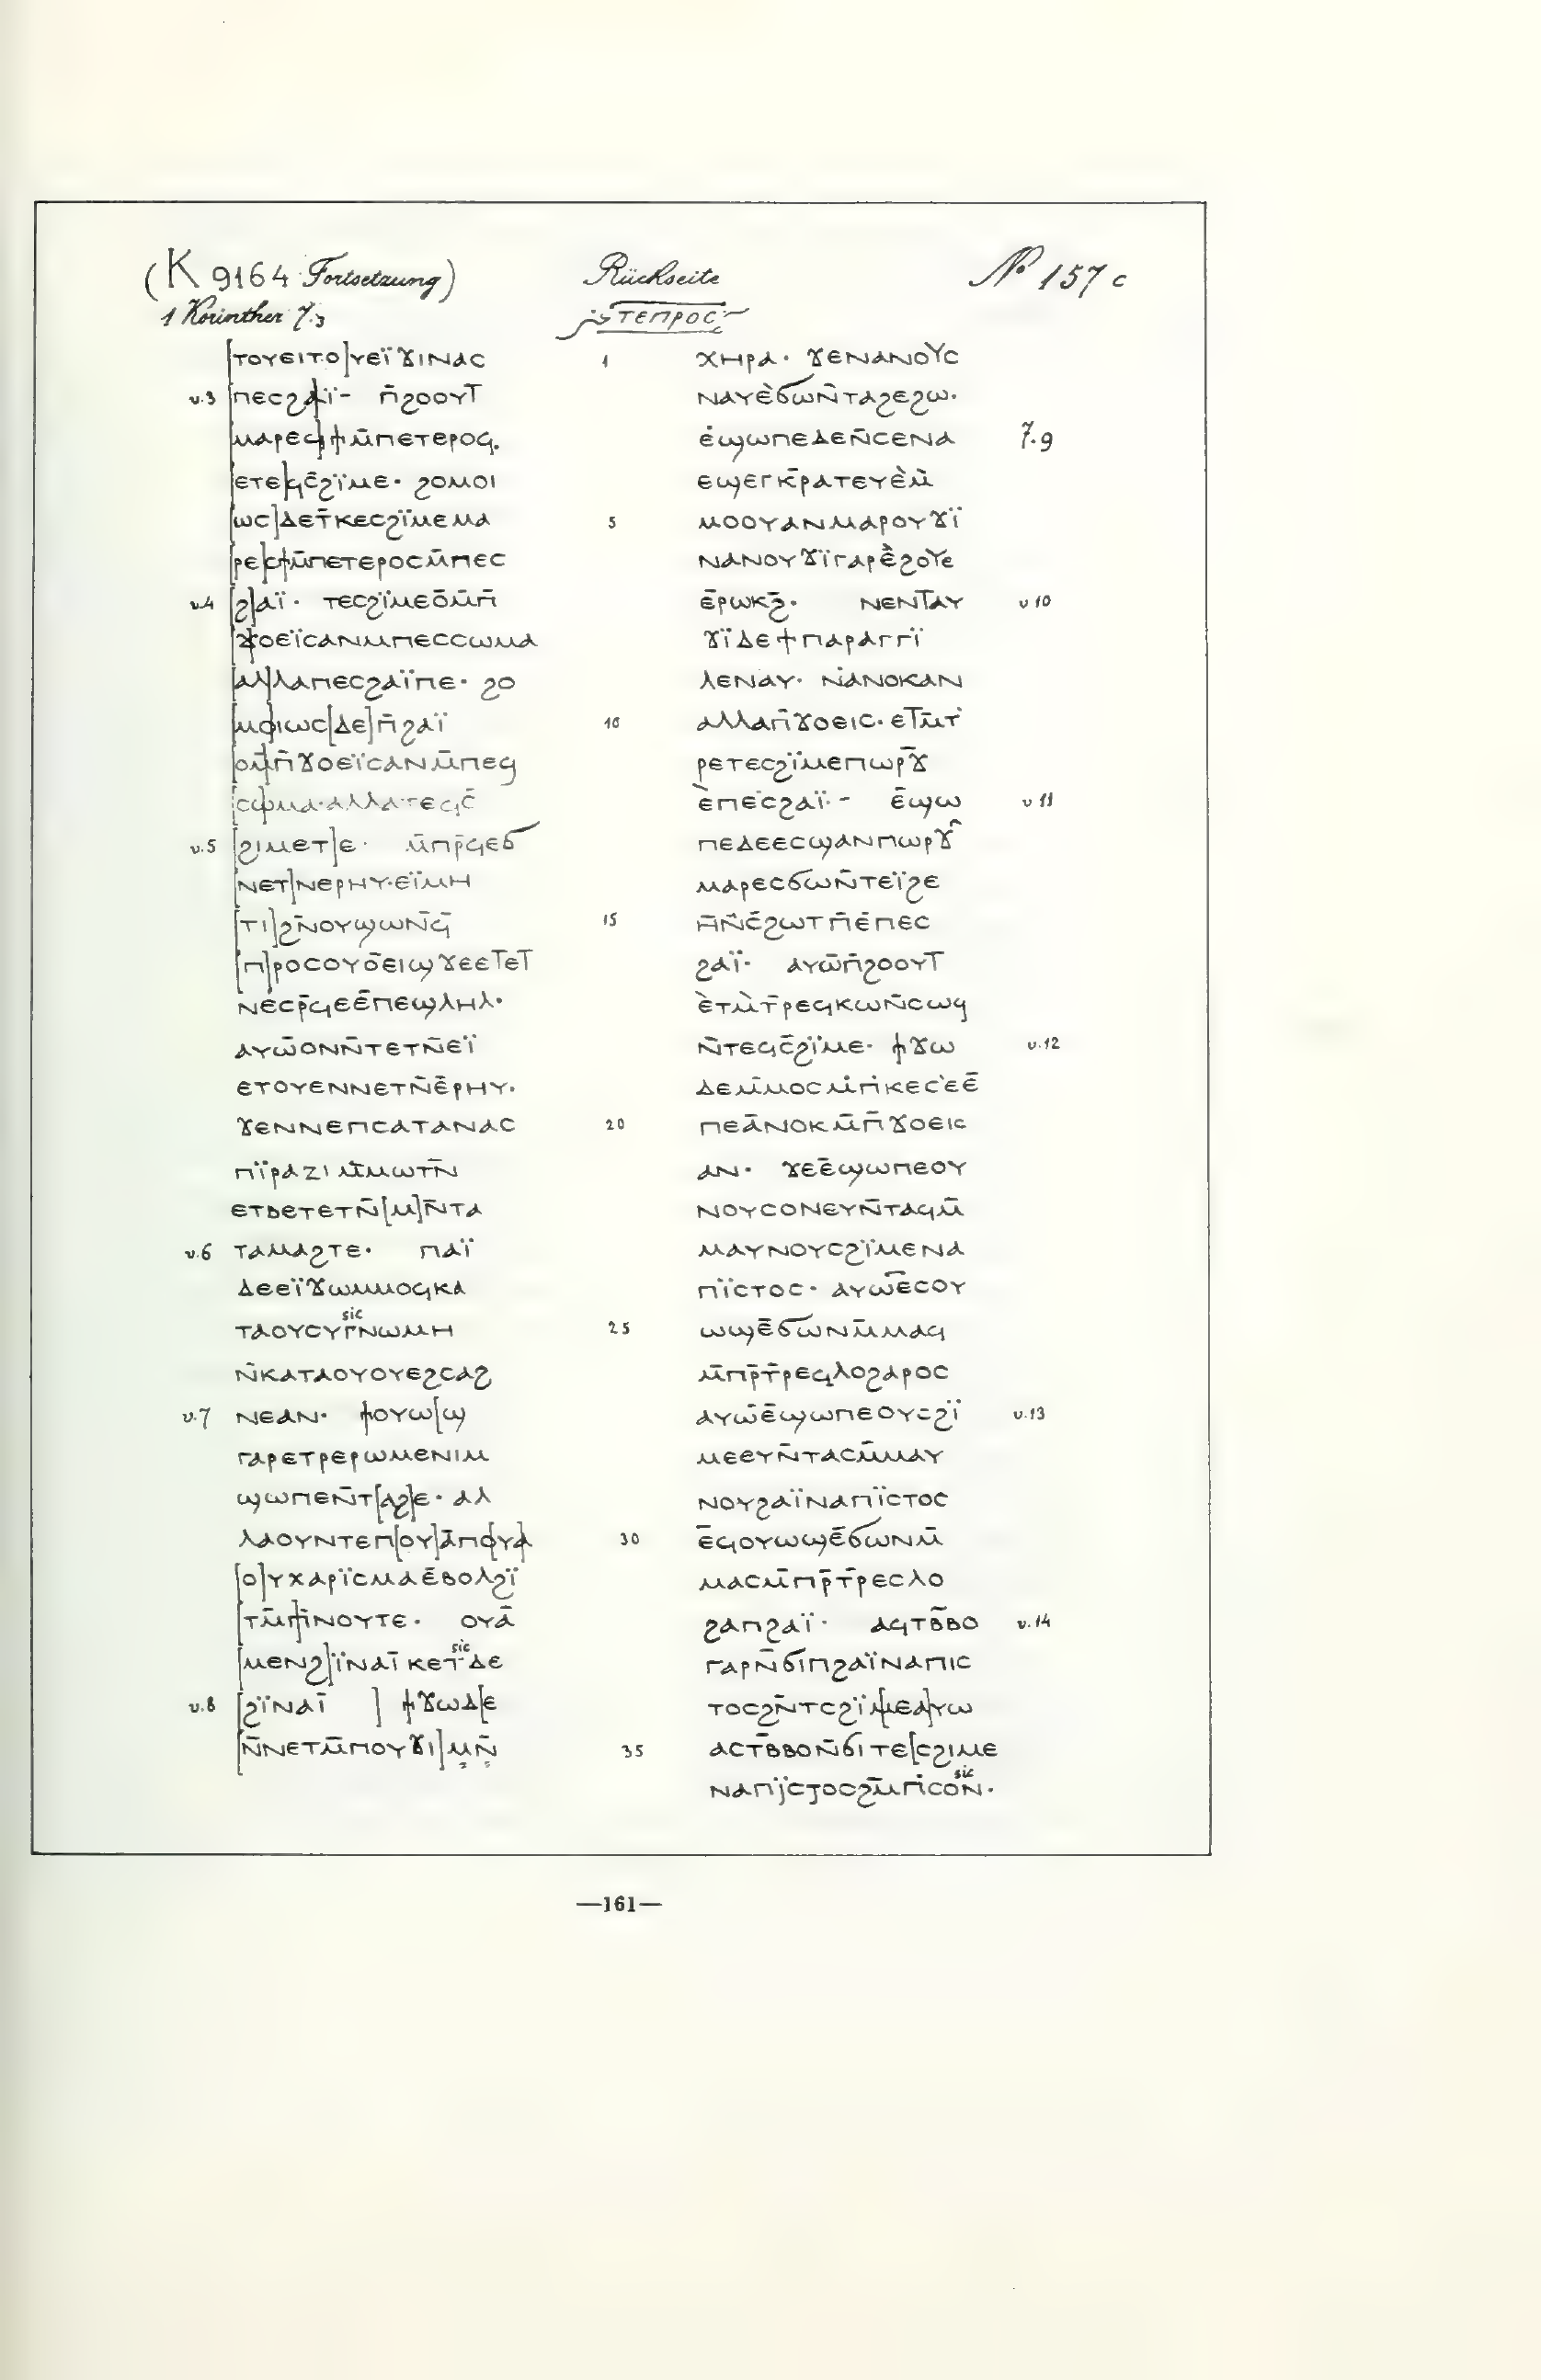 (K 9164 Fortsetzung) Rückseite № 157 c
1 Korinther 7.3 ⲧⲉⲡⲣⲟⲥ
[ⲧⲟⲩⲉⲓⲧⲟ]ⲩⲉⲓ̈ϫⲓⲛⲁⲥ
v.3 [ⲡⲉⲥϩⲁ]ⲓ̈- ⲡ̄ϩⲟⲟⲩⲧ
[ⲙⲁⲣⲉϥ]ϯⲙ̄ⲡⲉⲧⲉⲣⲟϥ.
[ⲉⲧⲉ]ϥⲥ̄ϩⲓ̈ⲙⲉ· ϩⲟⲙⲟⲓ
[ⲱⲥ]ⲇⲉⲧ̄ⲕⲉⲥϩⲓ̈ⲙⲉⲙⲁ
[ⲣⲉ]ⲥϯⲙ̄ⲡⲉⲧⲉⲣⲟⲥⲙ̄ⲡⲉⲥ
v.4 [ϩ]ⲁⲓ̈· ⲧⲉⲥϩⲓ̈ⲙⲉⲟ̄ⲙ̄ⲡ̄
ϫⲟⲉⲓ̈ⲥⲁⲛⲙⲡⲉⲥⲥⲱⲙⲁ
[ⲁⲗ]ⲗⲁⲡⲉⲥϩⲁⲓ̈ⲡⲉ· ϩⲟ
[ⲙⲟ]ⲓⲱⲥ[ⲇⲉ]ⲡ̄ϩⲁⲓ̈
[ⲟⲙ̄]ⲡ̄ϫⲟⲉⲓ̈ⲥⲁⲛⲙ̄ⲡⲉϥ
[ⲥⲱ]ⲙⲁ·ⲁⲗⲗⲁⲧⲉϥⲥ̄
v.5 [ϩⲓⲙⲉⲧ]ⲉ· ⲙ̄ⲡⲣ̄ϥⲉϭ
[ⲛⲉⲧ]ⲛⲉⲣⲏⲩ·ⲉⲓ̈ⲙⲏ
[ⲧⲓ]ϩ̄ⲛⲟⲩϣⲱⲛ̄ϥ̄
[ⲡ]ⲣⲟⲥⲟⲩⲟ̄ⲉⲓϣϫⲉⲉⲧⲉⲧ
ⲛⲉⲥⲣ̄ϥⲉⲉ̄ⲡⲉϣⲗⲏⲗ·
ⲁⲩⲱ̄ⲟⲛⲛ̄ⲧⲉⲧⲛ̄ⲉⲓ̈
ⲉⲧⲟⲩⲉⲛⲛⲉⲧⲛ̄ⲉ̄ⲣⲏⲩ·
ϫⲉⲛⲛⲉⲡⲥⲁⲧⲁⲛⲁⲥ
ⲡⲓ̈ⲣⲁⲍⲓⲙ̄ⲙⲱⲧⲛ̄
ⲉⲧⲃⲉⲧⲉⲧⲛ̄[ⲙ]ⲛ̄ⲧⲁ
v.6 ⲧⲁⲙⲁϩⲧⲉ· ⲡⲁⲓ̈
ⲇⲉⲉⲓ̈ϫⲱⲙⲙⲟϥⲕⲁ
sic
ⲧⲁⲟⲩⲥⲩⲅⲛⲱⲙⲏ
ⲛ̄ⲕⲁⲧⲁⲟⲩⲟⲩⲉϩⲥⲁϩ
v.7 ⲛⲉⲁⲛ· ϯⲟⲩⲱ[ϣ]
ⲅⲁⲣⲉⲧⲣⲉⲣⲱⲙⲉⲛⲓⲙ
ϣⲱⲡⲉⲛ̄ⲧ[ⲁϩ]ⲉ· ⲁⲗ
ⲗⲁⲟⲩⲛⲧⲉⲡ[ⲟⲩ]ⲁ̄ⲡⲟⲩⲁ
[ⲟ]ⲩⲭⲁⲣⲓ̈ⲥⲙⲁⲉ̄ⲃⲟⲗϩⲓ̈
[ⲧⲙ̄ⲡ]ⲛⲟⲩⲧⲉ· ⲟⲩⲁ̄
sic
[ⲙⲉⲛϩ]ⲓ̈ⲛⲁⲓ̄ⲕⲉⲧ̄ⲇⲉ
v.8 [ϩⲓ̈ⲛⲁⲓ̄ ] ϯϫⲱⲇ[ⲉ
[ⲛ̄ⲛⲉⲧⲙ̄ⲡⲟⲩϫⲓ]ⲙⲛ̄
1 ⲭⲏⲣⲁ· ϫⲉⲛⲁⲛⲟⲩⲥ
ⲛⲁⲩⲉ̀ϭⲱⲛ̄ⲧⲁϩⲉϩⲱ·
ⲉ̇ϣⲱⲡⲉⲇⲉⲛ̄ⲥⲉⲛⲁ 7.9
ⲉϣⲉⲅⲕ̄ⲣⲁⲧⲉⲩⲉ̀ⲙ̀
5 ⲙⲟⲟⲩⲁⲛⲙⲁⲣⲟⲩϫⲓ̈
ⲛⲁⲛⲟⲩϫⲓ̈ⲅⲁⲣⲉ̀ϩⲟⲩⲉ
ⲉ̄ⲣⲱⲕϩ̄· ⲛⲉⲛⲧⲁⲩ v 10
ϫⲓ̈ⲇⲉϯⲡⲁⲣⲁⲅⲅⲓ̈
ⲗⲉⲛⲁⲩ· ⲛ̇ⲁⲛⲟⲕⲁⲛ
10 ⲁⲗⲗⲁⲡ̄ϫⲟⲉⲓⲥ·ⲉⲧⲙ̄ⲧ
ⲣⲉⲧⲉⲥϩⲓ̈ⲙⲉⲡⲱⲣϫ̄
ⲉ̀ⲡⲉⲥϩⲁⲓ̈·- ⲉ̄ϣⲱ v 11
ⲡⲉⲇⲉⲉⲥϣⲁⲛⲡⲱⲣϫ̂
ⲙⲁⲣⲉⲥϭⲱⲛ̄ⲧⲉⲓ̈ϩⲉ
15 ⲏ̄ⲛ̄ⲥ̄ϩⲱⲧⲡ̄ⲉ̄ⲡⲉⲥ
ϩⲁⲓ̈· ⲁⲩⲱ̄ⲡ̄ϩⲟⲟⲩⲧ
ⲉ̀ⲧⲙ̀ⲧ̄ⲣⲉϥⲕⲱⲛ̄ⲥⲱϥ
ⲛ̄ⲧⲉϥⲥ̄ϩⲓ̈ⲙⲉ· ϯϫⲱ v.12
ⲇⲉⲙ̄ⲙⲟⲥⲙ̇ⲡ̇ⲕⲉⲥⲉⲉ̄
20 ⲡⲉⲁ̄ⲛⲟⲕⲙ̄ⲡ̄ϫⲟⲉⲓⲥ
ⲁⲛ· ϫⲉⲉ̄ϣⲱⲡⲉⲟⲩ
ⲛⲟⲩⲥⲟⲛⲉⲩⲛ̄ⲧⲁϥⲙ̄
ⲙⲁⲩⲛⲟⲩⲥϩⲓ̈ⲙⲉⲛⲁ
ⲡⲓ̈ⲥⲧⲟⲥ· ⲁⲩⲱ̄ⲉ̄ⲥⲟⲩ
25 ⲱϣⲉ̄ϭⲱⲛⲙ̄ⲙⲁϥ
ⲙ̄ⲡⲣ̄ⲧ̄ⲣⲉϥⲗⲟϩⲁⲣⲟⲥ
ⲁⲩⲱ̄ⲉ̄ϣⲱⲡⲉⲟⲩⲥϩⲓ̈ v.13
ⲙⲉⲉⲩⲛ̄ⲧⲁⲥⲙ̄ⲙⲁⲩ
ⲛⲟⲩϩⲁⲓ̈ⲛⲁⲡⲓ̈ⲥⲧⲟⲥ
30 ⲉ̄ϥⲟⲩⲱϣⲉ̄ϭⲱⲛⲙ̄
ⲙⲁⲥⲙ̄ⲡⲣ̄ⲧ̄ⲣⲉⲥⲗⲟ
ϩⲁⲡϩⲁⲓ̈· ⲁϥⲧⲃ̄ⲃⲟ v.14
ⲅⲁⲣⲛ̄ϭⲓⲡϩⲁⲓ̈ⲛⲁⲡⲓⲥ
ⲧⲟⲥϩⲛ̄ⲧⲥϩⲓ̈[ⲙⲉⲁ]ⲩⲱ
35 ⲁⲥⲧⲃ̄ⲃⲟⲛ̄ϭⲓⲧⲉ[ⲥϩⲓⲙⲉ
sic
ⲛⲁⲡⲓ̈ⲥⲧⲟⲥϩⲙ̄ⲡ̇ⲥⲟⲛ·
—161—